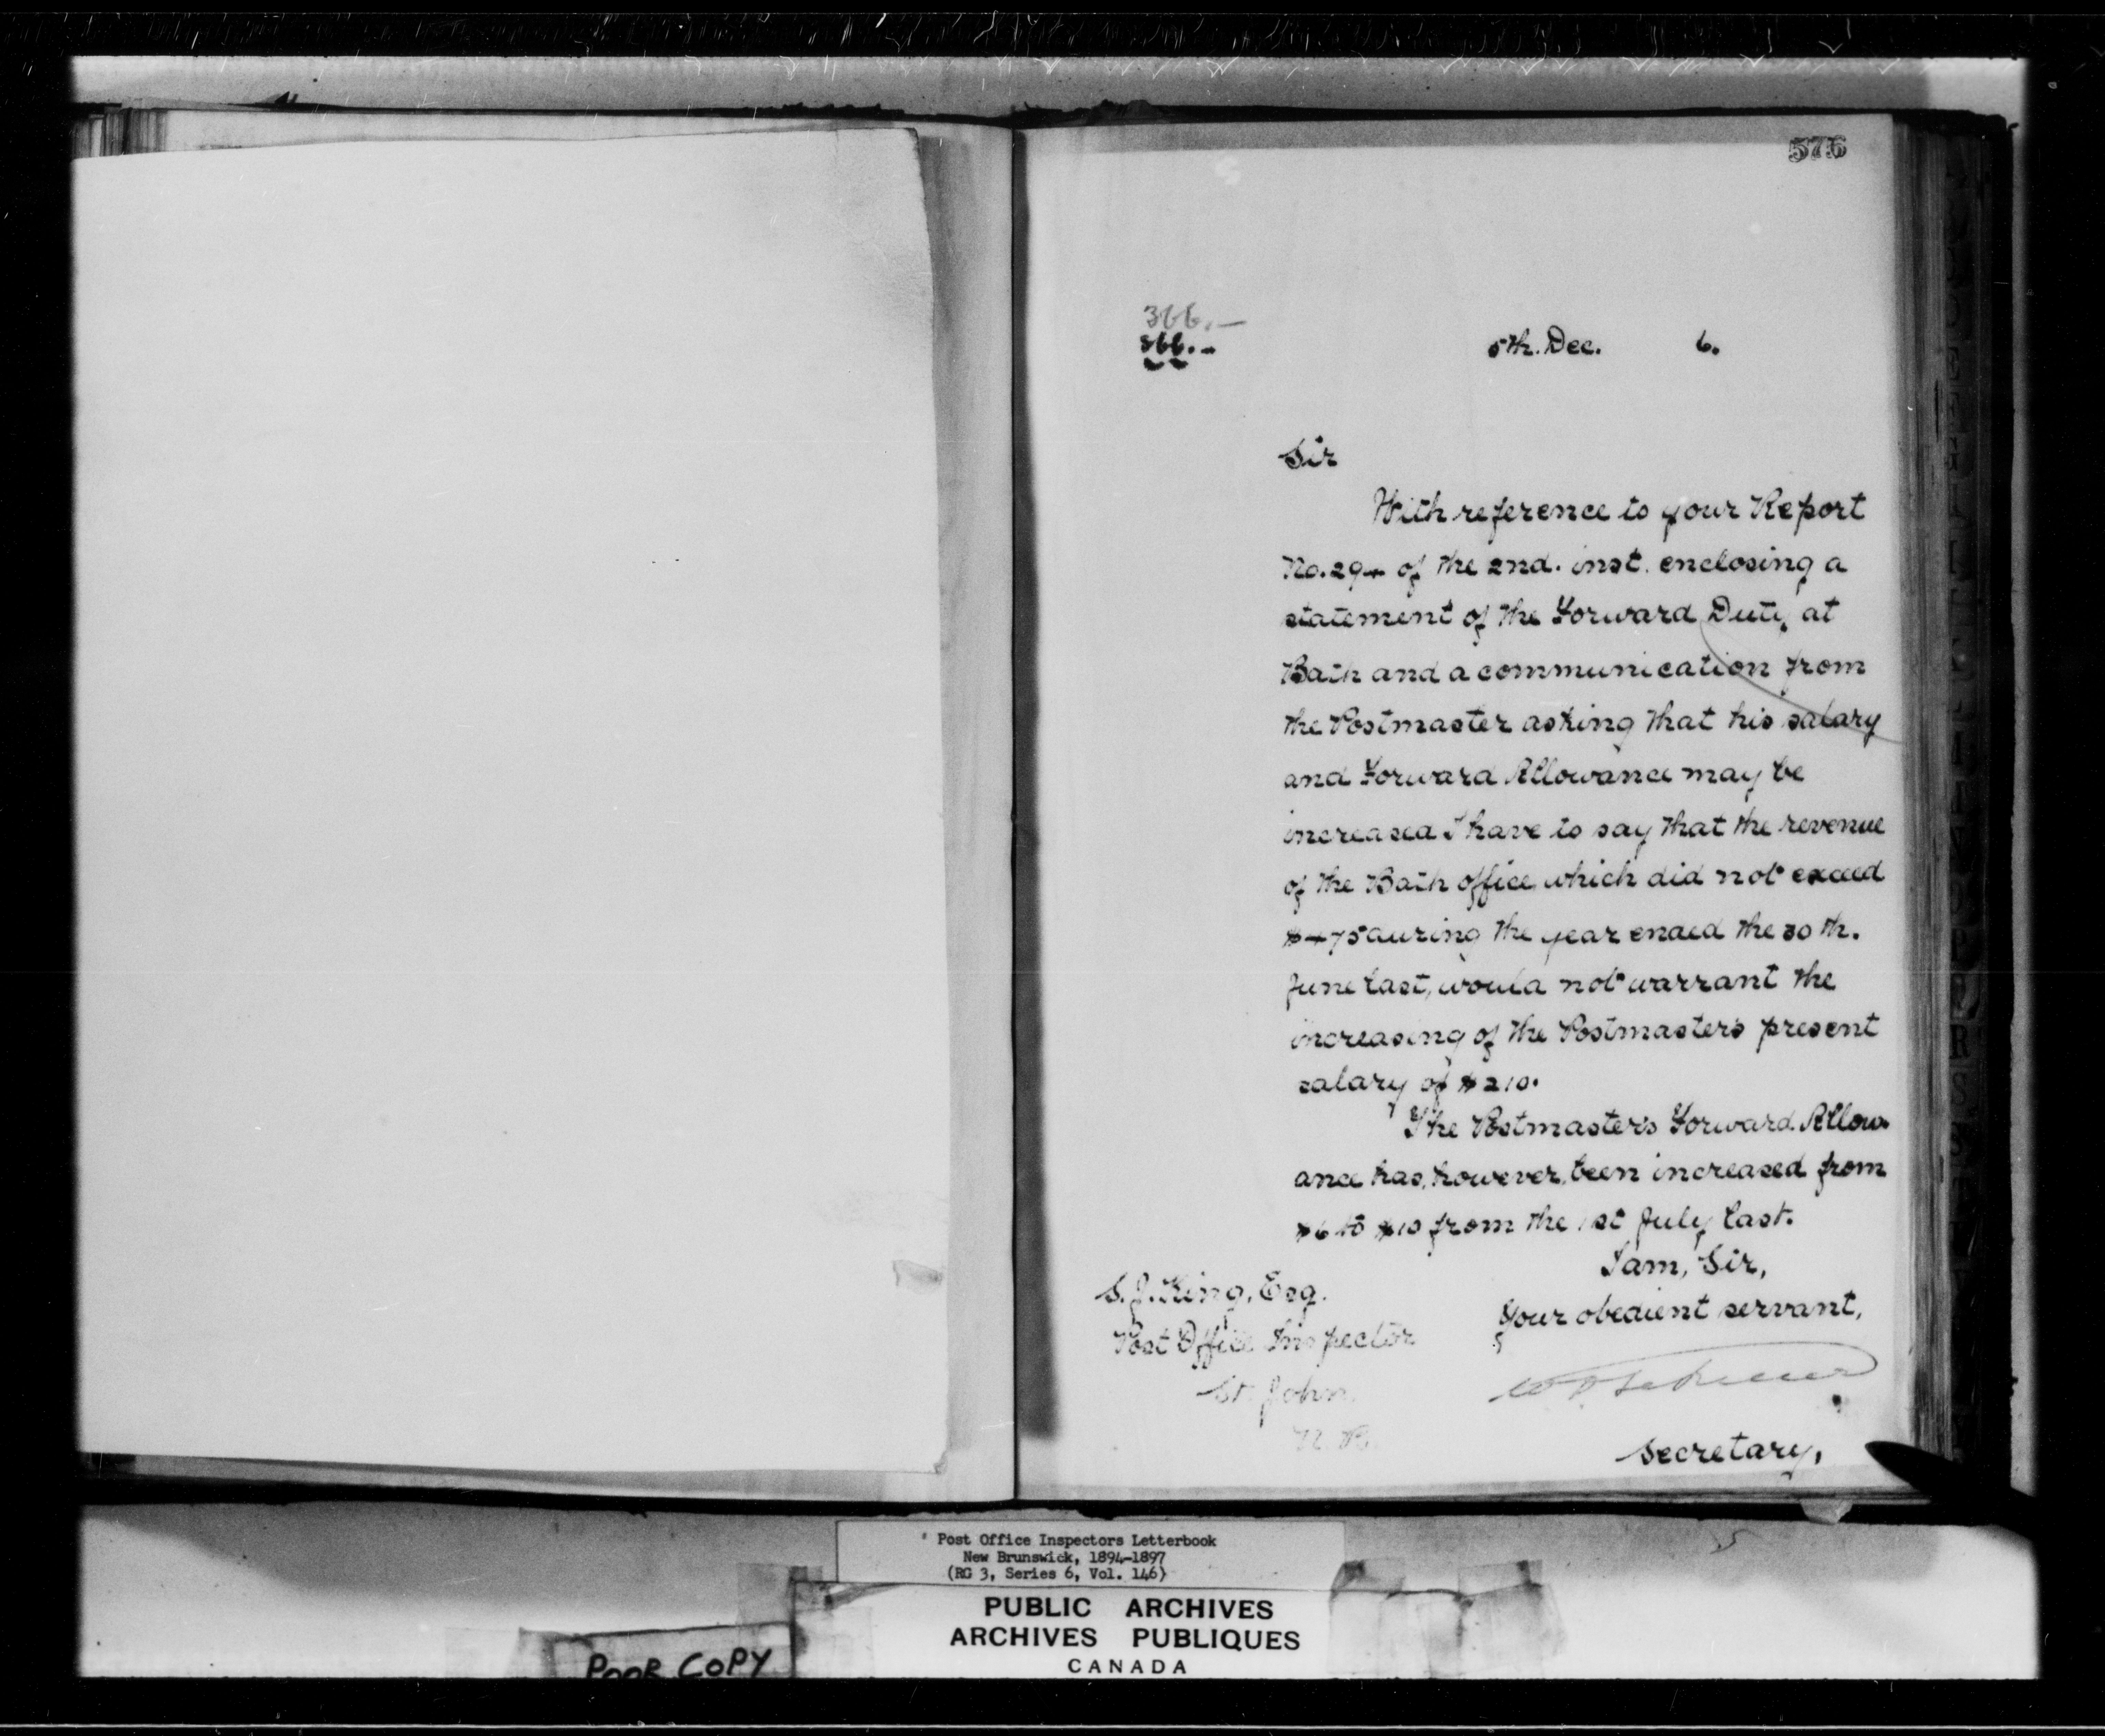 576
366.-
366.-
5th. Dec. 6.
Sir
With reference to your Report
No. 294 of the 2nd. inst. enclosing a
statement of the Forward Duty at
Bath and a communication from
the Postmaster asking that his salary
and Forward Allowance may be
increased I have to say that the revenue
of the Bath office which did not exceed
$475 during the year ended the 30th.
June last, would not warrant the
increasing of the Postmaster's present
salary of $210.
The Postmaster's Forward Allow-
ance has, however, been increased from
$6 to $10 from the 1st July last.
I am, Sir,
Your obedient servant,
Secretary,
S. J. King, Esq.
Post Office Inspector
St. John
N.B.
Post Office Inspectors Letterbook
New Brunswick, 1894-1897
(RG 3, Series 6, Vol. 146)
PUBLIC ARCHIVES
ARCHIVES PUBLIQUES
CANADA
POOR COPY